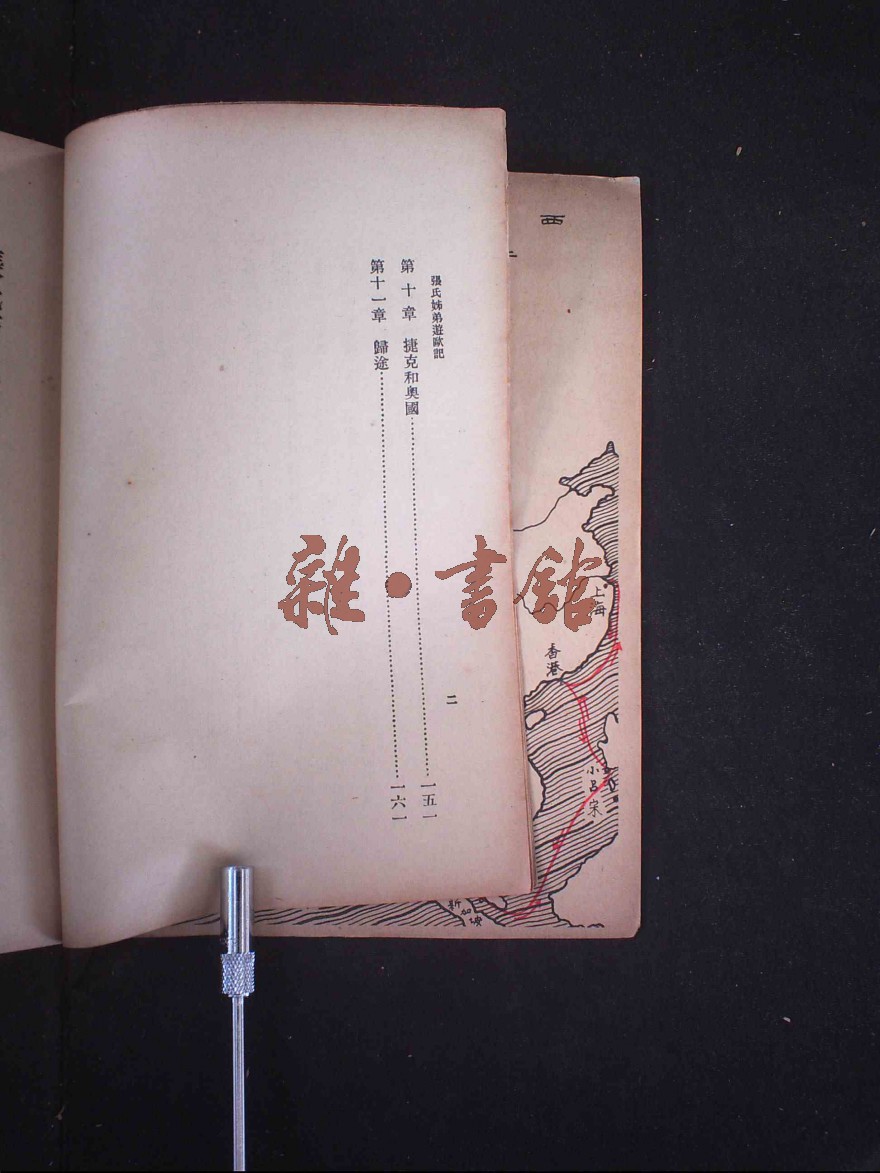 張氏姊弟遊歐記
第十章　捷克和奧國……一五一
第十一章　歸途……一六一
二
雜·書館
西
上海
香港
小呂宋
新加坡